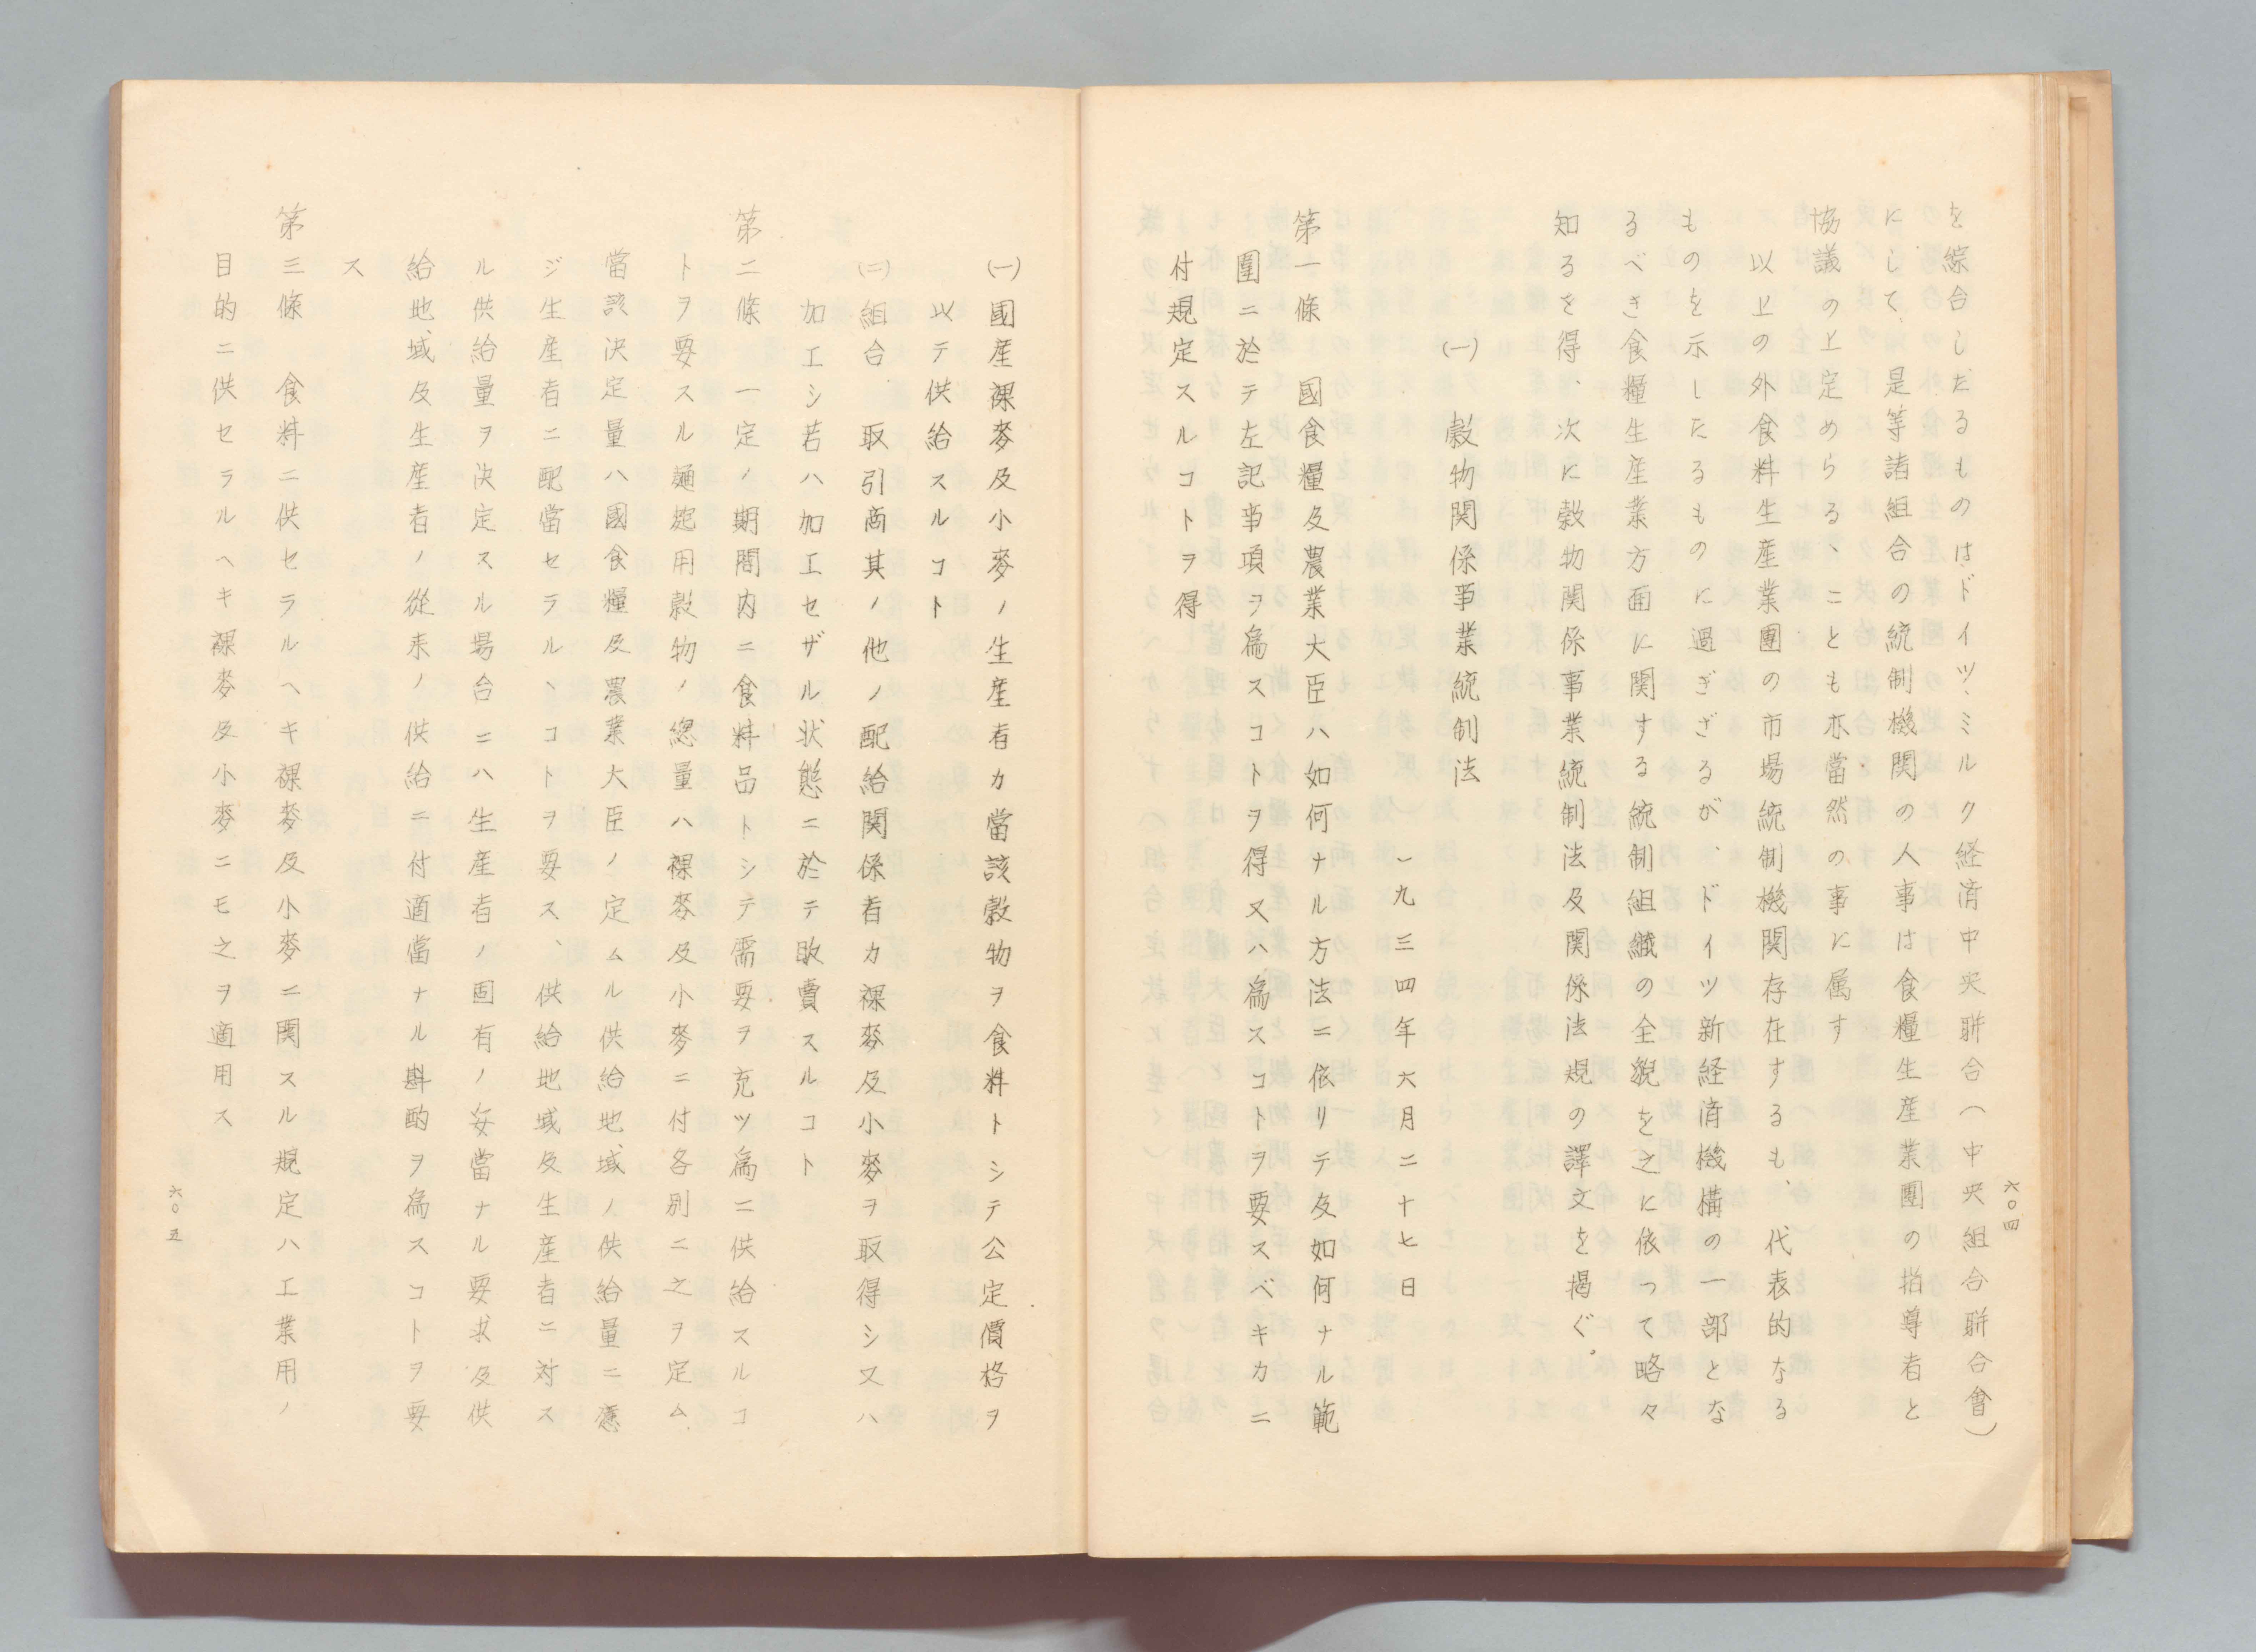 を綜合したるものはドイツ、ミルク経済中央聯合（中央組合聯合會）
にして、是等諸組合の統制機関の人事は食糧生産業團の指導者と
協議の上定めらるゝことも亦當然の事に属す
以上の外食料生産業團の市場統制機関存在するも、代表的なる
ものを示したるものに過ぎざるが、ドイツ新経済機構の一部とな
るべき食糧生産業方面に関する統制組織の全貌を之に依って略々
知るを得、次に穀物関係事業統制法及関係法規の譯文を掲ぐ。
(一) 穀物関係事業統制法
一九三四年六月二十七日
第一條 國食糧及農業大臣ハ如何ナル方法ニ依リテ及如何ナル範
圍ニ於テ左記事項ヲ為スコトヲ得又ハ為スコトヲ要スベキカニ
付規定スルコトヲ得
六〇四
(一) 國産裸麥及小麥ノ生産者カ當該穀物ヲ食料トシテ公定價格ヲ
以テ供給スルコト
(二) 組合 取引商其ノ他ノ配給関係者カ裸麥及小麥ヲ取得シ又ハ
加工シ若ハ加工セザル状態ニ於テ販賣スルコト
第二條 一定ノ期間内ニ食料品トシテ需要ヲ充ツ為ニ供給スルコ
トヲ要スル麺麭用穀物ノ總量ハ裸麥及小麥ニ付各別ニ之ヲ定ム
當該決定量ハ國食糧及農業大臣ノ定ムル供給地域ノ供給量ニ應
ジ生産者ニ配當セラルヽコトヲ要ス、供給地域及生産者ニ対ス
ル供給量ヲ決定スル場合ニハ生産者ノ固有ノ妥當ナル要求及供
給地域及生産者ノ從来ノ供給ニ付適當ナル斟酌ヲ為スコトヲ要
ス
第三條 食料ニ供セラルヘキ裸麥及小麥ニ関スル規定ハ工業用ノ
目的ニ供セラルヘキ裸麥及小麥ニモ之ヲ適用ス
六〇五